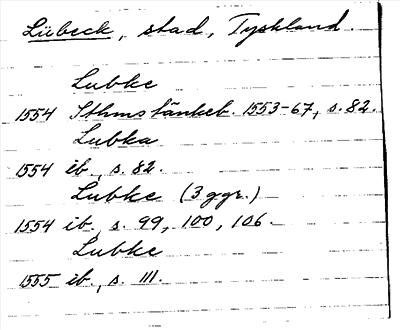 Lübeck, stad, Tyskland.
Lubke
1554 Sthms tänkeb. 1553-67, s. 82.
Lubka
1554 ib., s. 82.
Lubke (3 ggr.)
1554 ib. s. 99, 100, 106.
Lubke
1555 ib., s. 111.